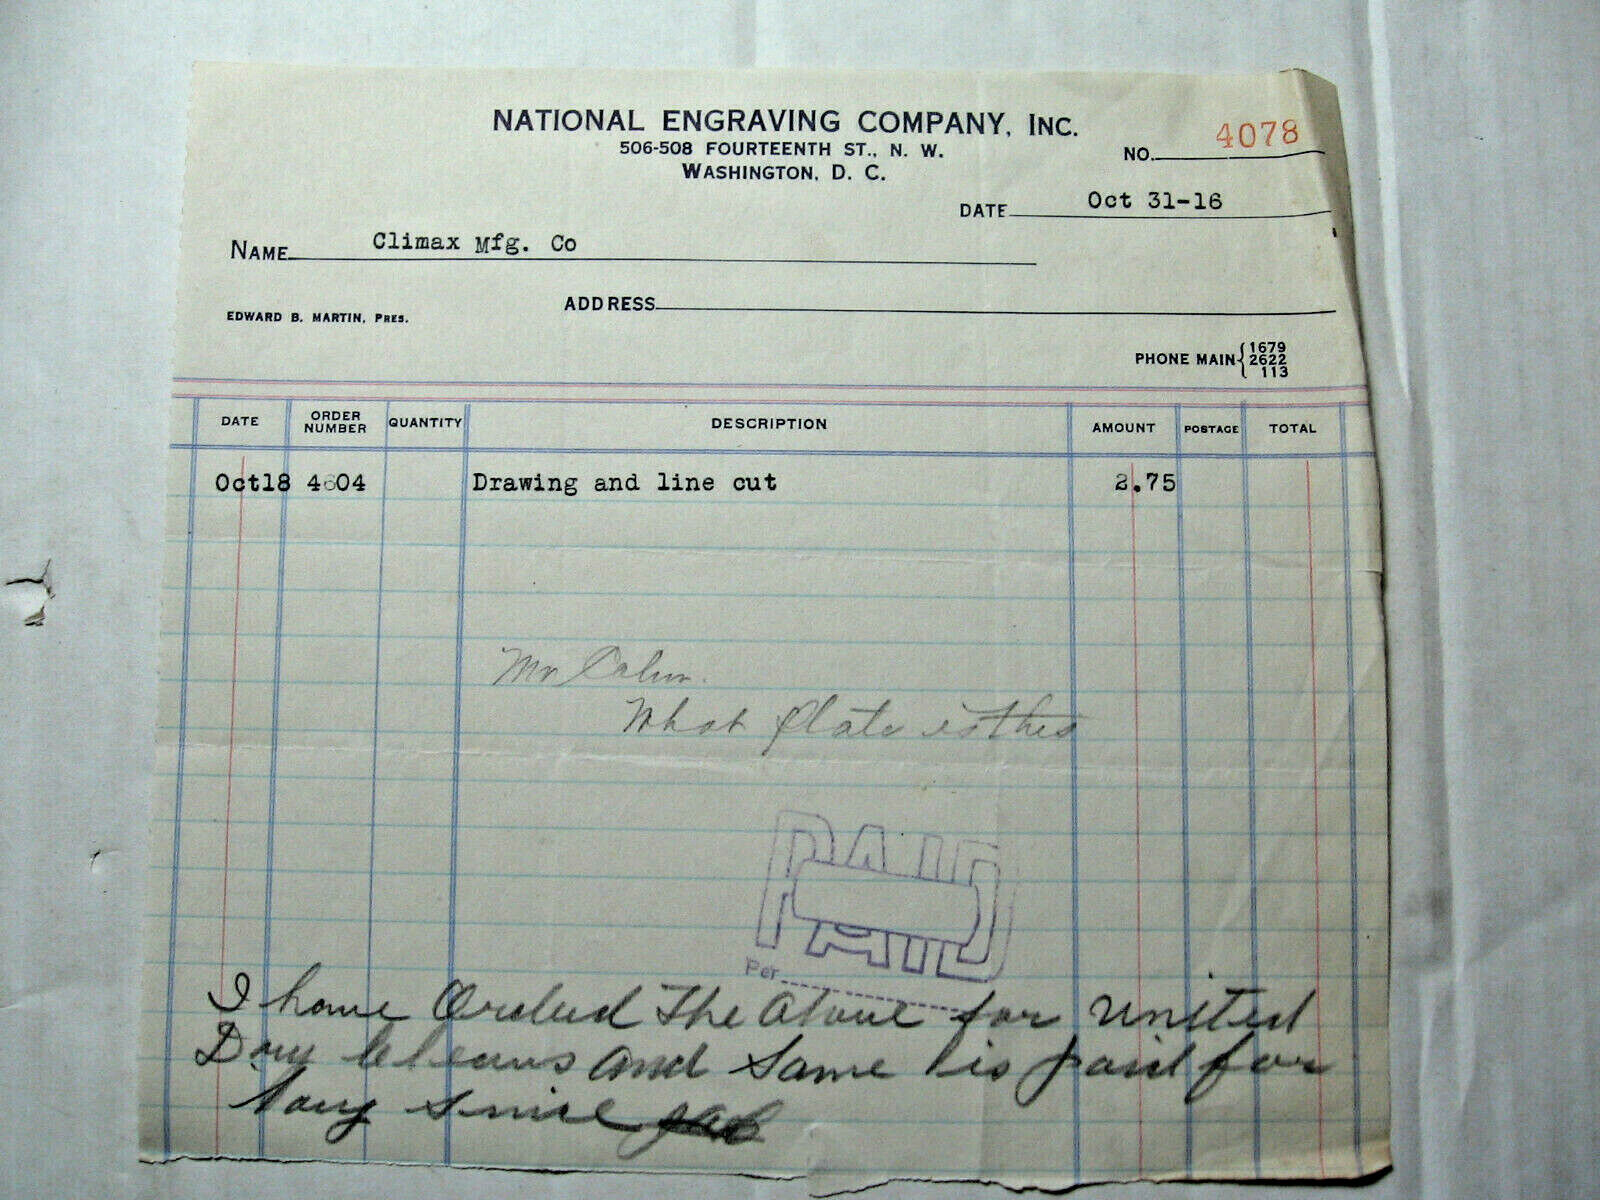 NATIONAL ENGRAVING COMPANY, INC.
506-508 FOURTEENTH ST., N. W.
WASHINGTON, D. C.
NO. 4078
DATE Oct 31-16
NAME Climax Mfg. Co
ADDRESS
EDWARD B. MARTIN, PRES.
PHONE MAIN { 1679
2622
113
DATE ORDER NUMBER QUANTITY DESCRIPTION AMOUNT POSTAGE TOTAL
Oct18 4604 Drawing and line cut 2.75
Mr
What Plate is this
PAID
Per
I have Ordered The Above for United
Dry Cleaners and Same is paid for
long since